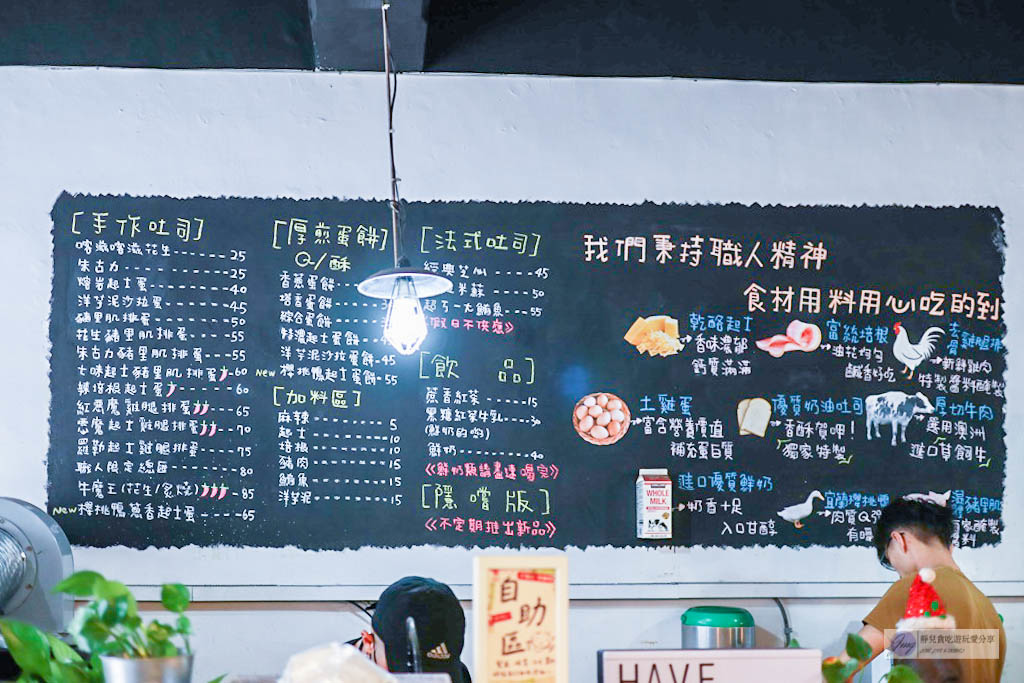 [手作吐司]
喀滋喀滋花生------25
朱古力----------25
熔岩起士蛋------40
洋芋泥沙拉蛋----45
豬里肌排蛋------50
花生豬里肌排蛋---55
朱古力豬里肌排蛋--55
七味起士豬里肌排蛋-60
辣培根起士蛋----60
紅惡魔雞腿排蛋---65
惡魔起士雞腿排蛋--70
羅勒起士雞腿排蛋--75
職人限定總匯----80
牛魔王(花生/炙燒)-85
new櫻桃鴨蔥香起士蛋--65
[厚煎蛋餅]
Q/酥
香蔥蛋餅
塔香蛋餅
綜合蛋餅
特濃起士蛋餅
洋芋泥沙拉蛋餅-45
new櫻桃鴨起士蛋餅-55
[加料區]
麻辣--------5
起士--------10
培根--------10
豬肉--------15
鮪魚--------15
洋芋泥------15
[法式吐司]
經典芝心-----45
米蘇----50
超ㄅ一大鮪魚--55
假日不供應》
[飲 品]
蔥香紅茶-----15
黑糖紅茶牛乳---30
(鮮奶的喲)
鮮奶--------40
《鮮奶類請盡速喝完》
[隱嚐版]
《不定期推出新品》
我們秉持職人精神
食材用料用心吃的到
乾酪起士
香味濃郁
鈣質滿滿
富絲培根
油花均勻
鹹香好吃
去骨雞腿排
新鮮雞肉
特製醬料醃製
土雞蛋
富含營養價值
補充蛋白質
優質奶油吐司
香酥質吧!
獨家特製
厚切牛肉
選用澳洲
進口草飼牛
進口優質鮮奶
奶香十足
入口甘醇
WHOLE
MILK
宜蘭櫻桃鴨
肉質Q
有嚼
豬里肌
醃製
醬料
自助區
HAVE
靜兒貪吃遊玩愛分享